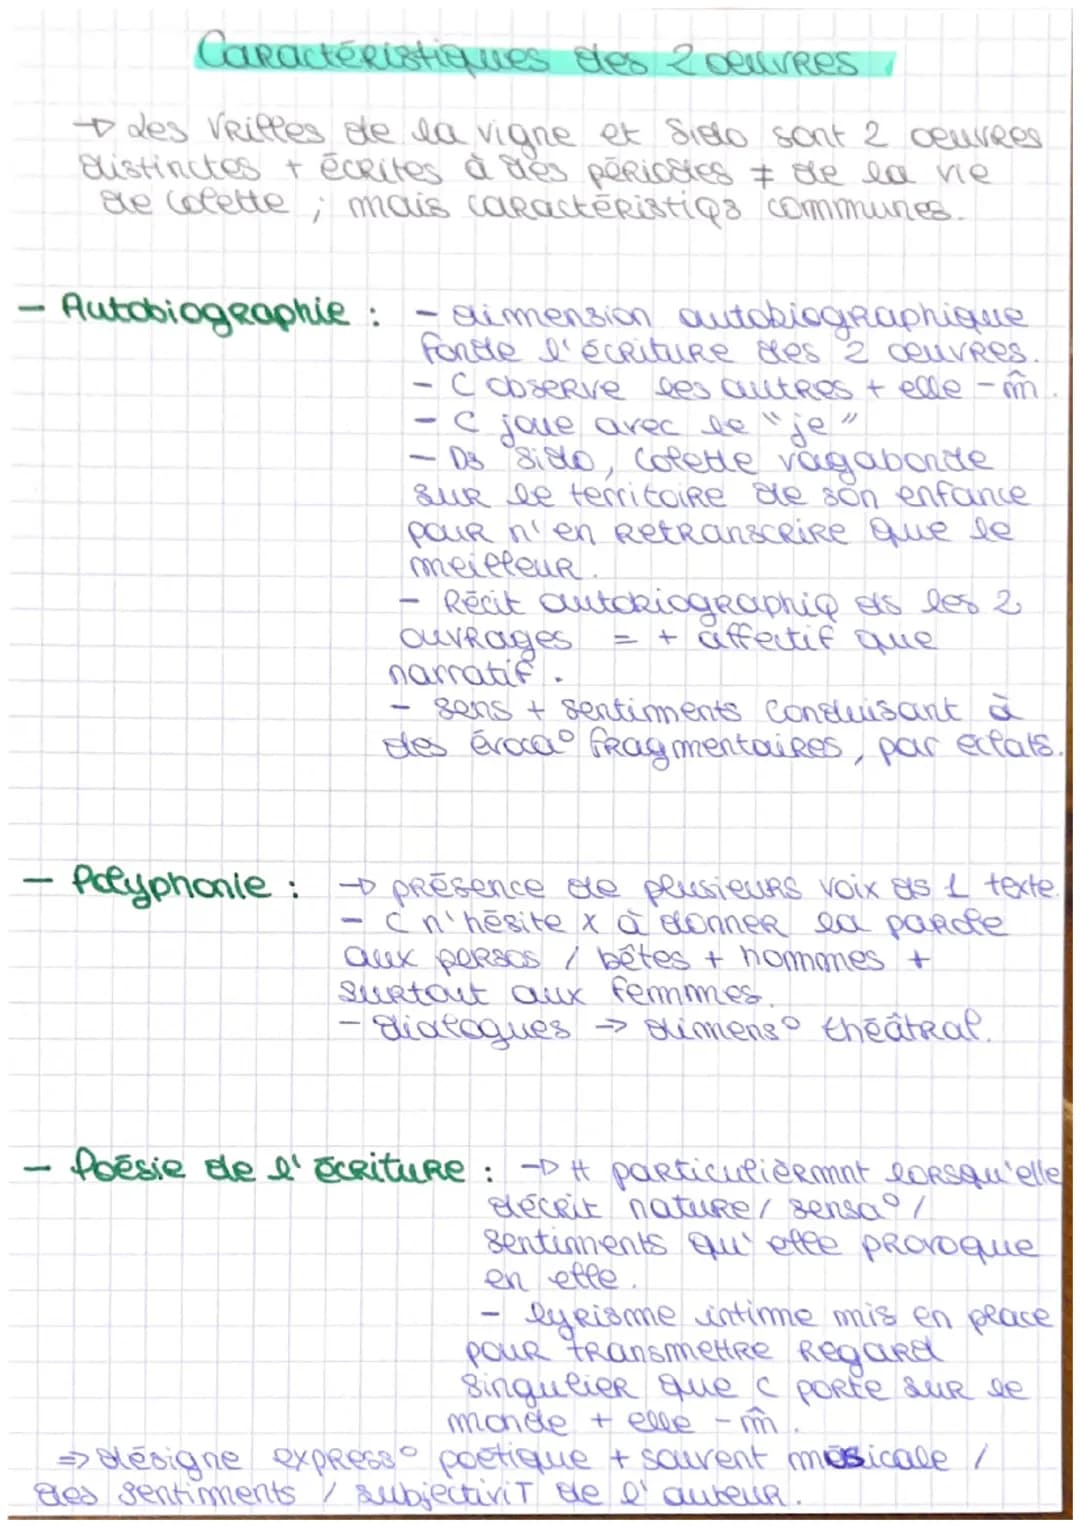 Caractéristiques des 2 oeuvres
→ Les Vrilles de la vigne et Sido sont 2 oeuvres
distinctes + écrites à des périodes ≠ de la vie
de Colette ; mais caractéristiqs communes.
- Autobiographie : - dimension autobiographique
fonde l'écriture des 2 oeuvres.
- C observe les autres + elle - m̂.
- C joue avec le "je"
- Ds Sido, Colette vagabonde
sur le territoire de son enfance
pour n'en retranscrire que le
meilleur.
- Récit autobiographiq ds les 2
ouvrages = + affectif que
narratif.
- sens + sentiments conduisant à
des évoca° fragmentaires, par éclats.
- Polyphonie : → présence de plusieurs voix ds 1 texte.
- C n'hésite x à donner la parole
aux persos / bêtes + hommes +
surtout aux femmes.
- dialogues → dimens° théâtral.
- Poésie de l'écriture : → # particulièrmnt lorsqu'elle
décrit nature / sensa° /
sentiments qu'elle provoque
en elle.
- lyrisme intime mis en place
pour transmettre regard
singulier que C porte sur le
monde + elle - m̂.
⇒ désigne express° poétique + souvent musicale /
des sentiments / subjectiviT de l'auteur.